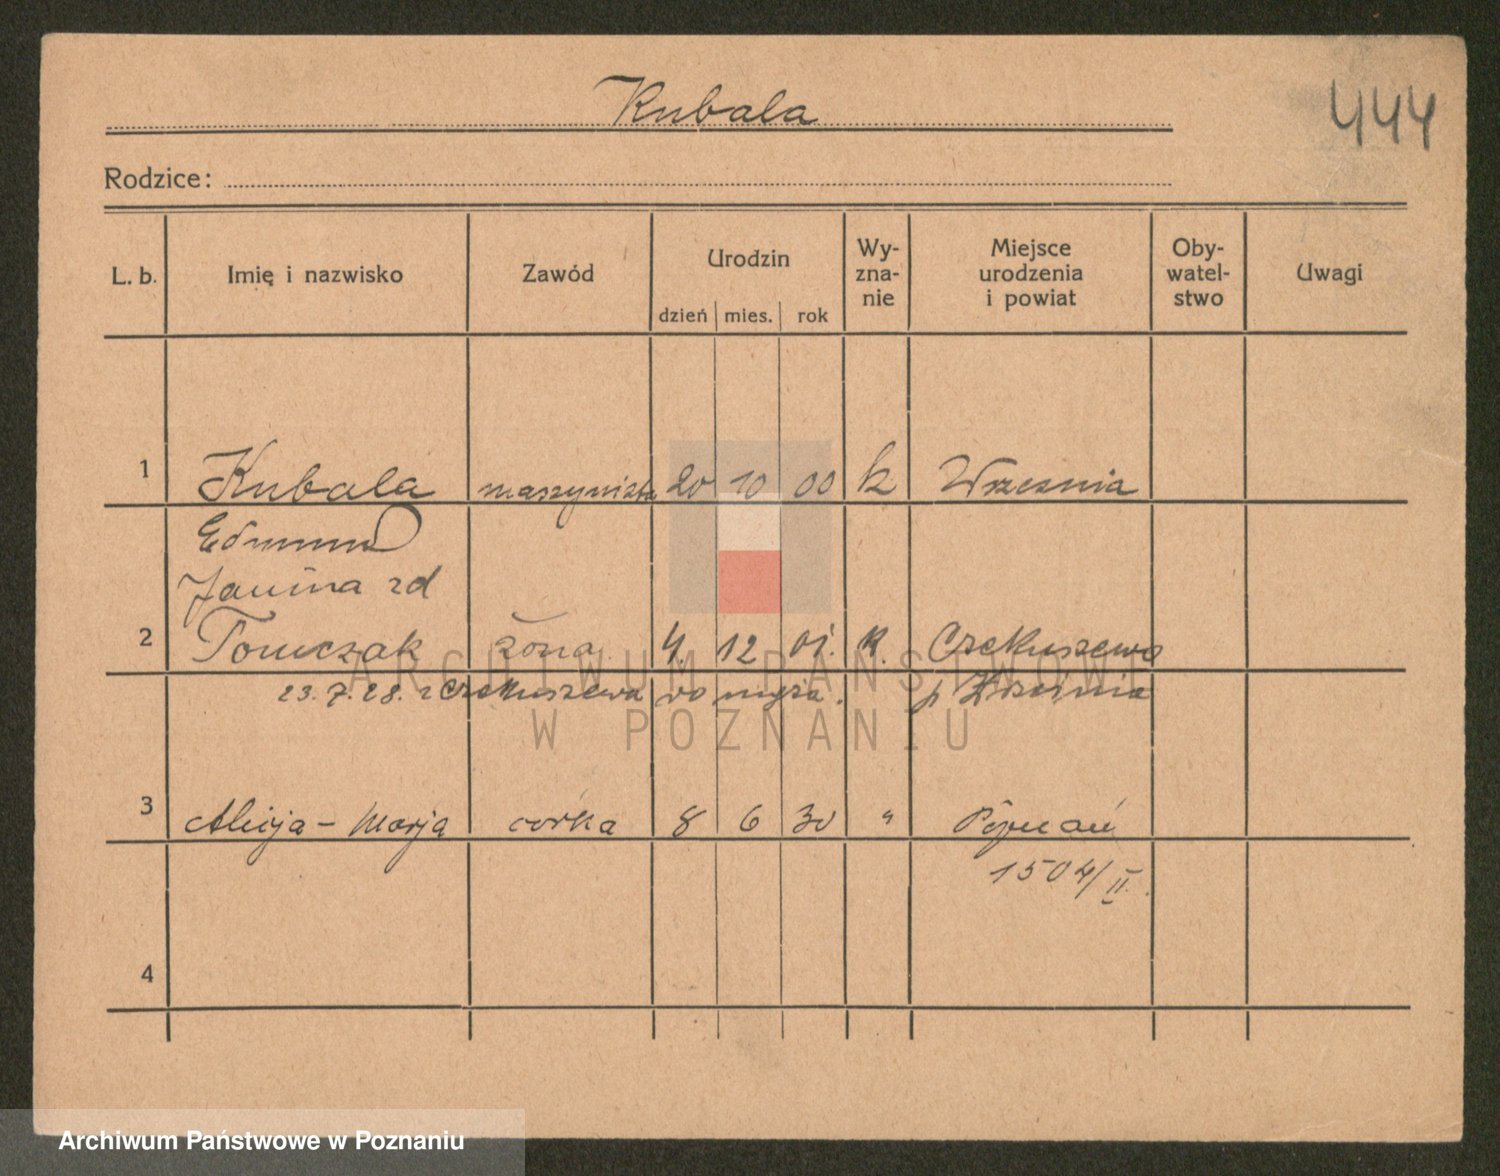 Kubala
444
Rodzice:
L. b. Imię i nazwisko Zawód Urodzin dzień mies. rok Wy-zna-nie Miejsce urodzenia i powiat Oby-watel-stwo Uwagi
1 Kubala maszynista 20 10 00 k Wrzesnia
Edmund
Janina rd
2 Tomczak żona 4. 12 01. k. Czekuszewo
23.7.28. z Czekuszewa do męża. p Września
3 Alicja - Marja córka 8 6 30 " Poznań
1504/II.
4
ARCHIWUM PAŃSTWOWE
W POZNANIU
Archiwum Państwowe w Poznaniu